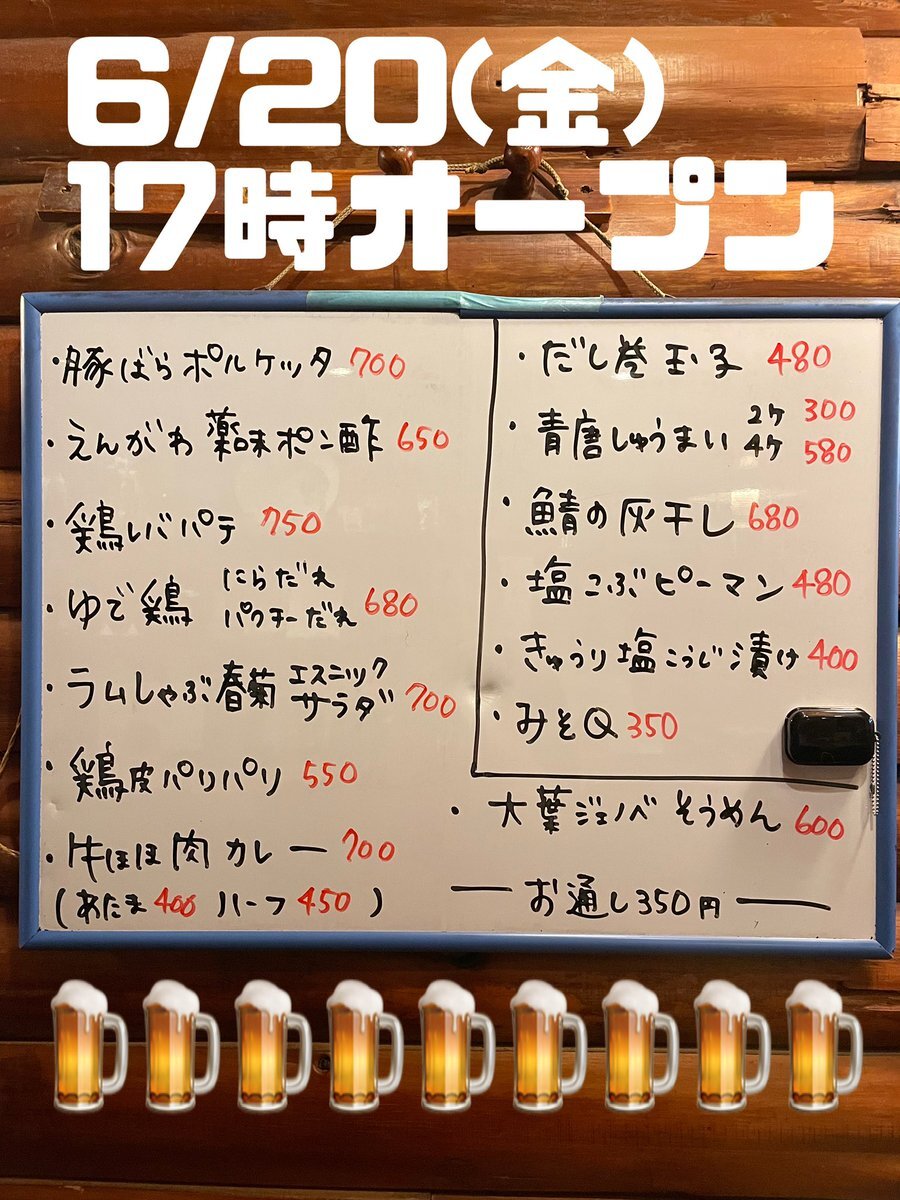 6/20(金)
17時オープン
・豚ばらポルケッタ 700
・えんがわ 薬味ポン酢 650
・鶏レバパテ 750
・ゆで鶏 にらだれ
パクチーだれ 680
・ラムしゃぶ春菊 エスニック
サラダ 700
・鶏皮パリパリ 550
・牛ほほ肉カレー 700
(あたま400 ハーフ450)
・だし巻玉子 480
・青唐しゅうまい 2ケ 300
4ケ 580
・鯖の灰干し 680
・塩こぶピーマン 480
・きゅうり塩こうじ漬け 400
・みそQ 350
・大葉ジェノベそうめん 600
— お通し350円 —